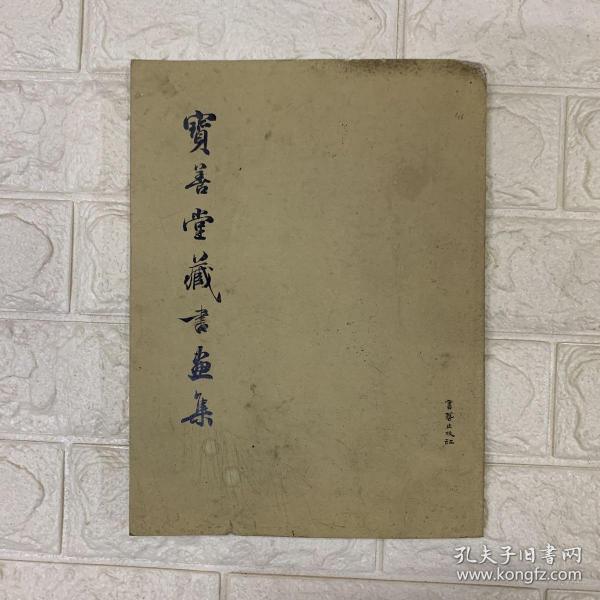 寶善堂藏書畫集
書譜出版社
孔夫子旧书网
www.kongfz.com